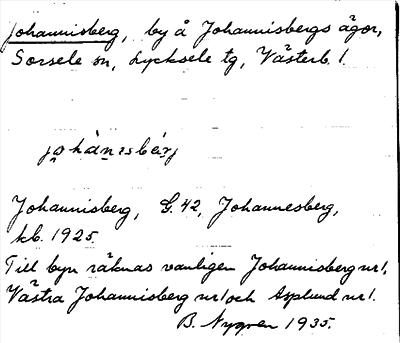 Johannisberg, by å Johannisbergs ägor,
Sorsele sn, Lycksele tg, Västerb. l.
johànısbærj
Johannisberg, G. 42, Johannesberg,
kb. 1925.
Till byn räknas vanligen Johannisberg nr 1,
Västra Johannisberg nr 1 och Asplund nr 1.
B. Nygren 1935.